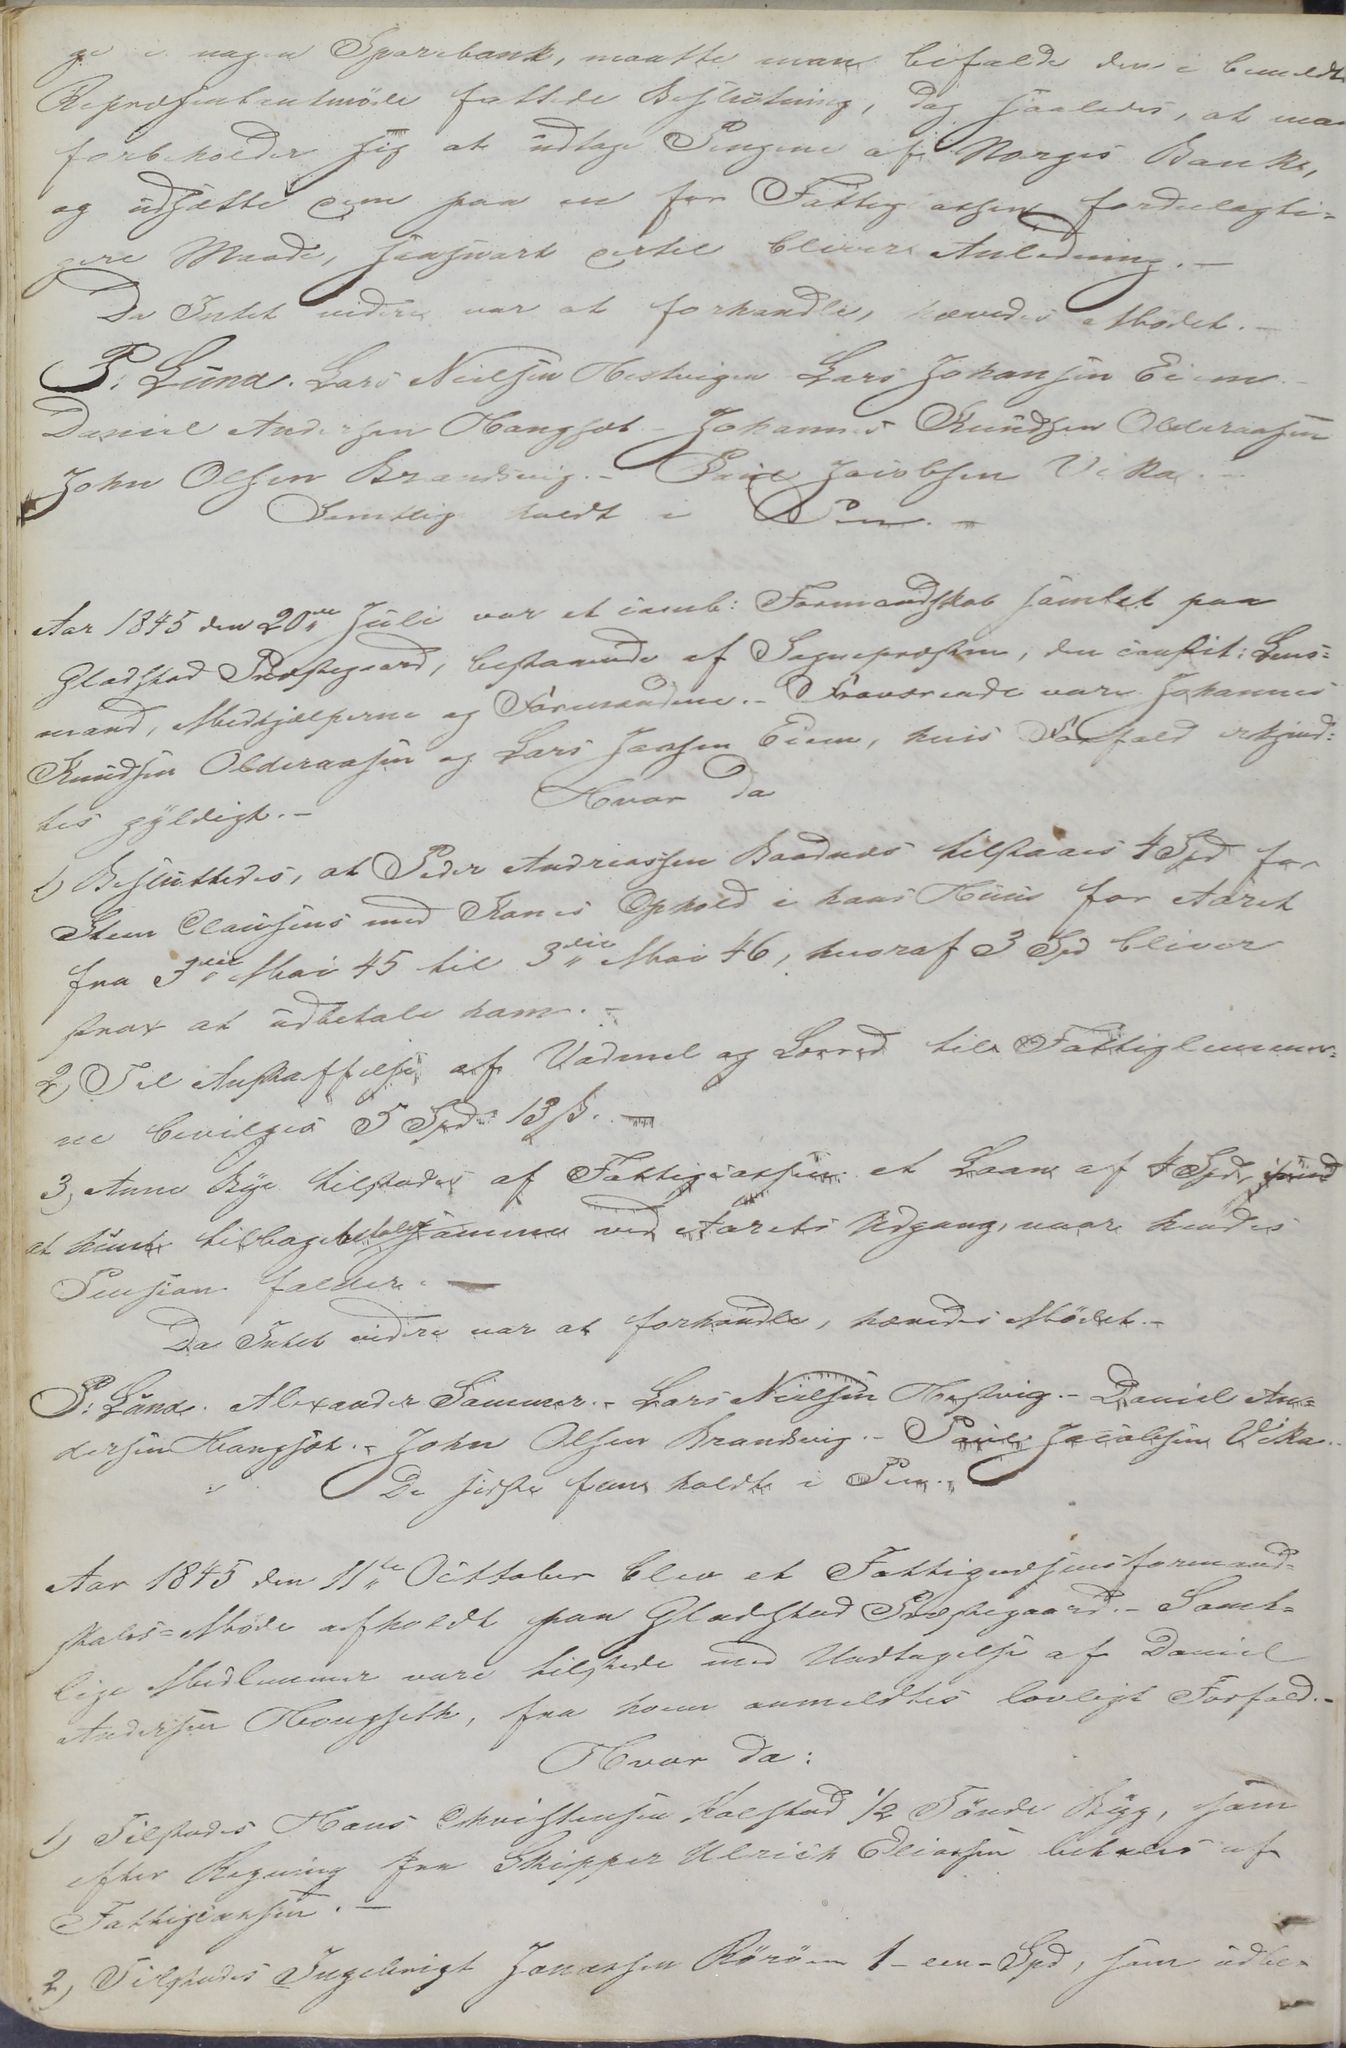 ge i nogen Sparebank, maatte man bifalde den i bemeldte
Repræsentantmöde fattede Beslutning, dog saaledes, at man
forbeholder sig at udtage Pengene af Norges Bank,
og udsætte dem paa en for Fattigcassen fordeelagti-
gere Maade, saasnart dertil bliver Anledning.-
Da Intet videre var at forhandle, hævedes Mödet.-
P: Lund. Lars Nielsen Hestvigen Lars Johansen Eiem.-
Daniel Andersen Hongset - Johannes Knudsen Olderaasen
John Olsen Brandsvig.- Paul Jacobsen Vika.-
Samtlig holdt i Pen.-
Aar 1845 den 20de Juli var et comb: Formandskab samlet paa
Gladstad Præstegaard, bestaaende af Sognepræsten, den constit: Lens-
mand, Medhjælperne og Formændene.- Fraværende vare Johannes
Knudsen Olderaasen og Lars Jansen Eiem, hvis Forfald erkjend-
tes gyldigt.-
Hvor da
1) Besluttedes, at Peder Andreassen Baadnes tilstaaes 4 Spd for
Steen Clausens med Kones Ophold i hans Huus for Aaret
fra 3die Mai 45 til 3die Mai 46, hvoraf 3 Spd bliver
strax at udbetale ham.-
2) Til Anskaffelse af Vadmel og Lærred til Fattiglemmer-
ne bevilges 5 Spd 13 ß.-
3, Anne Bye tilstodes af Fattigcassen et Laan af 4 Spd, imod
at hun tilbagebetaler samme ved Aarets Udgang, naar hendes
Pension falder.-
Da Intet videre var at forhandle, hævedes Mödet.-
P: Lund. Alexander Sammer.- Lars Nielsen Hestvig.- Daniel An-
dersen Hongset.- John Olsen Brandsvig.- Paul Jacobsen Vika.-
De sidste fem holdt i Pen.-
Aar 1845 den 11te October blev et Fattigvæsensformand-
skabs-Möde afholdt paa Gladstad Præstegaard.- Samt-
lige Medlemmer vare tilstede med Undtagelse af Daniel
Andersen Hongseth, fra hvem anmeldtes lovligt Forfald.-
Hvor da:
1) Tilstodes Hans Christensen Kalstad 1/2 Tönde Byg, som
efter Regning fra Skipper Ulrich Eliassen betales af
Fattigcassen.-
2) Tilstodes Ingebrigt Jonassen Röröen 1 - een - Spd, som udbe-